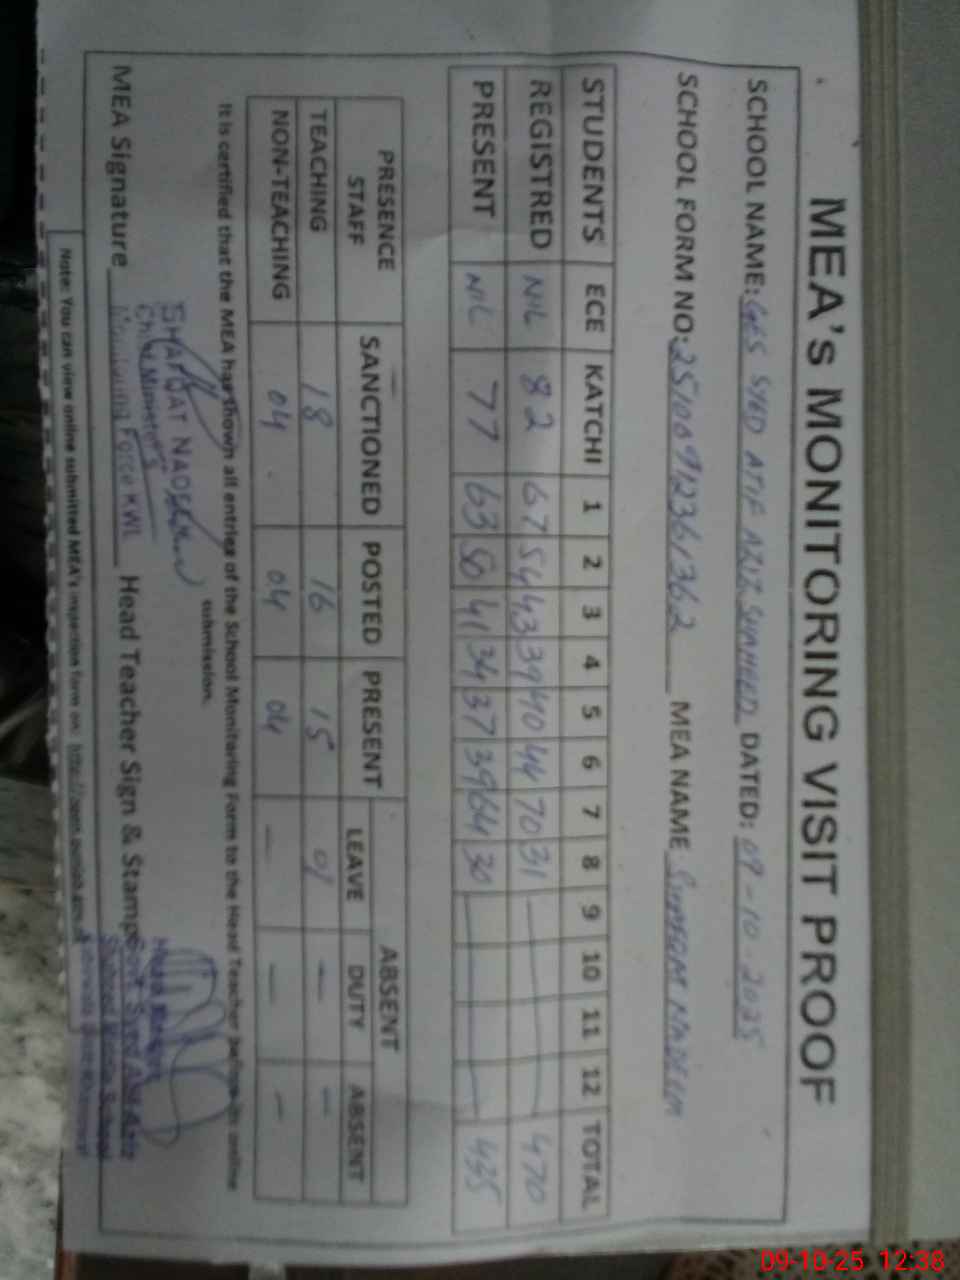 MEA's MONITORING VISIT PROOF
SCHOOL NAME: GES SYED ATIF AZIZ SHAHEED DATED: 09-10-2025
SCHOOL FORM NO: 25100912361362 MEA NAME NADEEM
STUDENTS ECE KATCHI 1 2 3 4 5 6 7 8 9 10 11 12 TOTAL
REGISTRED NIL 82 67 54 43 39 40 44 70 31 470
PRESENT NIL 77 63 50 41 34 37 39 64 30 435
PRESENCE STAFF SANCTIONED POSTED PRESENT ABSENT
LEAVE DUTY ABSENT
TEACHING 18 16 15 01 — —
NON-TEACHING 04 04 04 — — —
It is certified that the MEA has shown all entries of the School Monitoring Form to the Head Teacher before its online
submission.
SHAFQAT NADEEM
Chief Minister's
Monitoring Force KWL
MEA Signature Head Teacher Sign & Stamp
Govt. Syed Atif Aziz
Shaheed School
Note: You can view online submitted MEA's inspection form on:
09-10-25 12:38